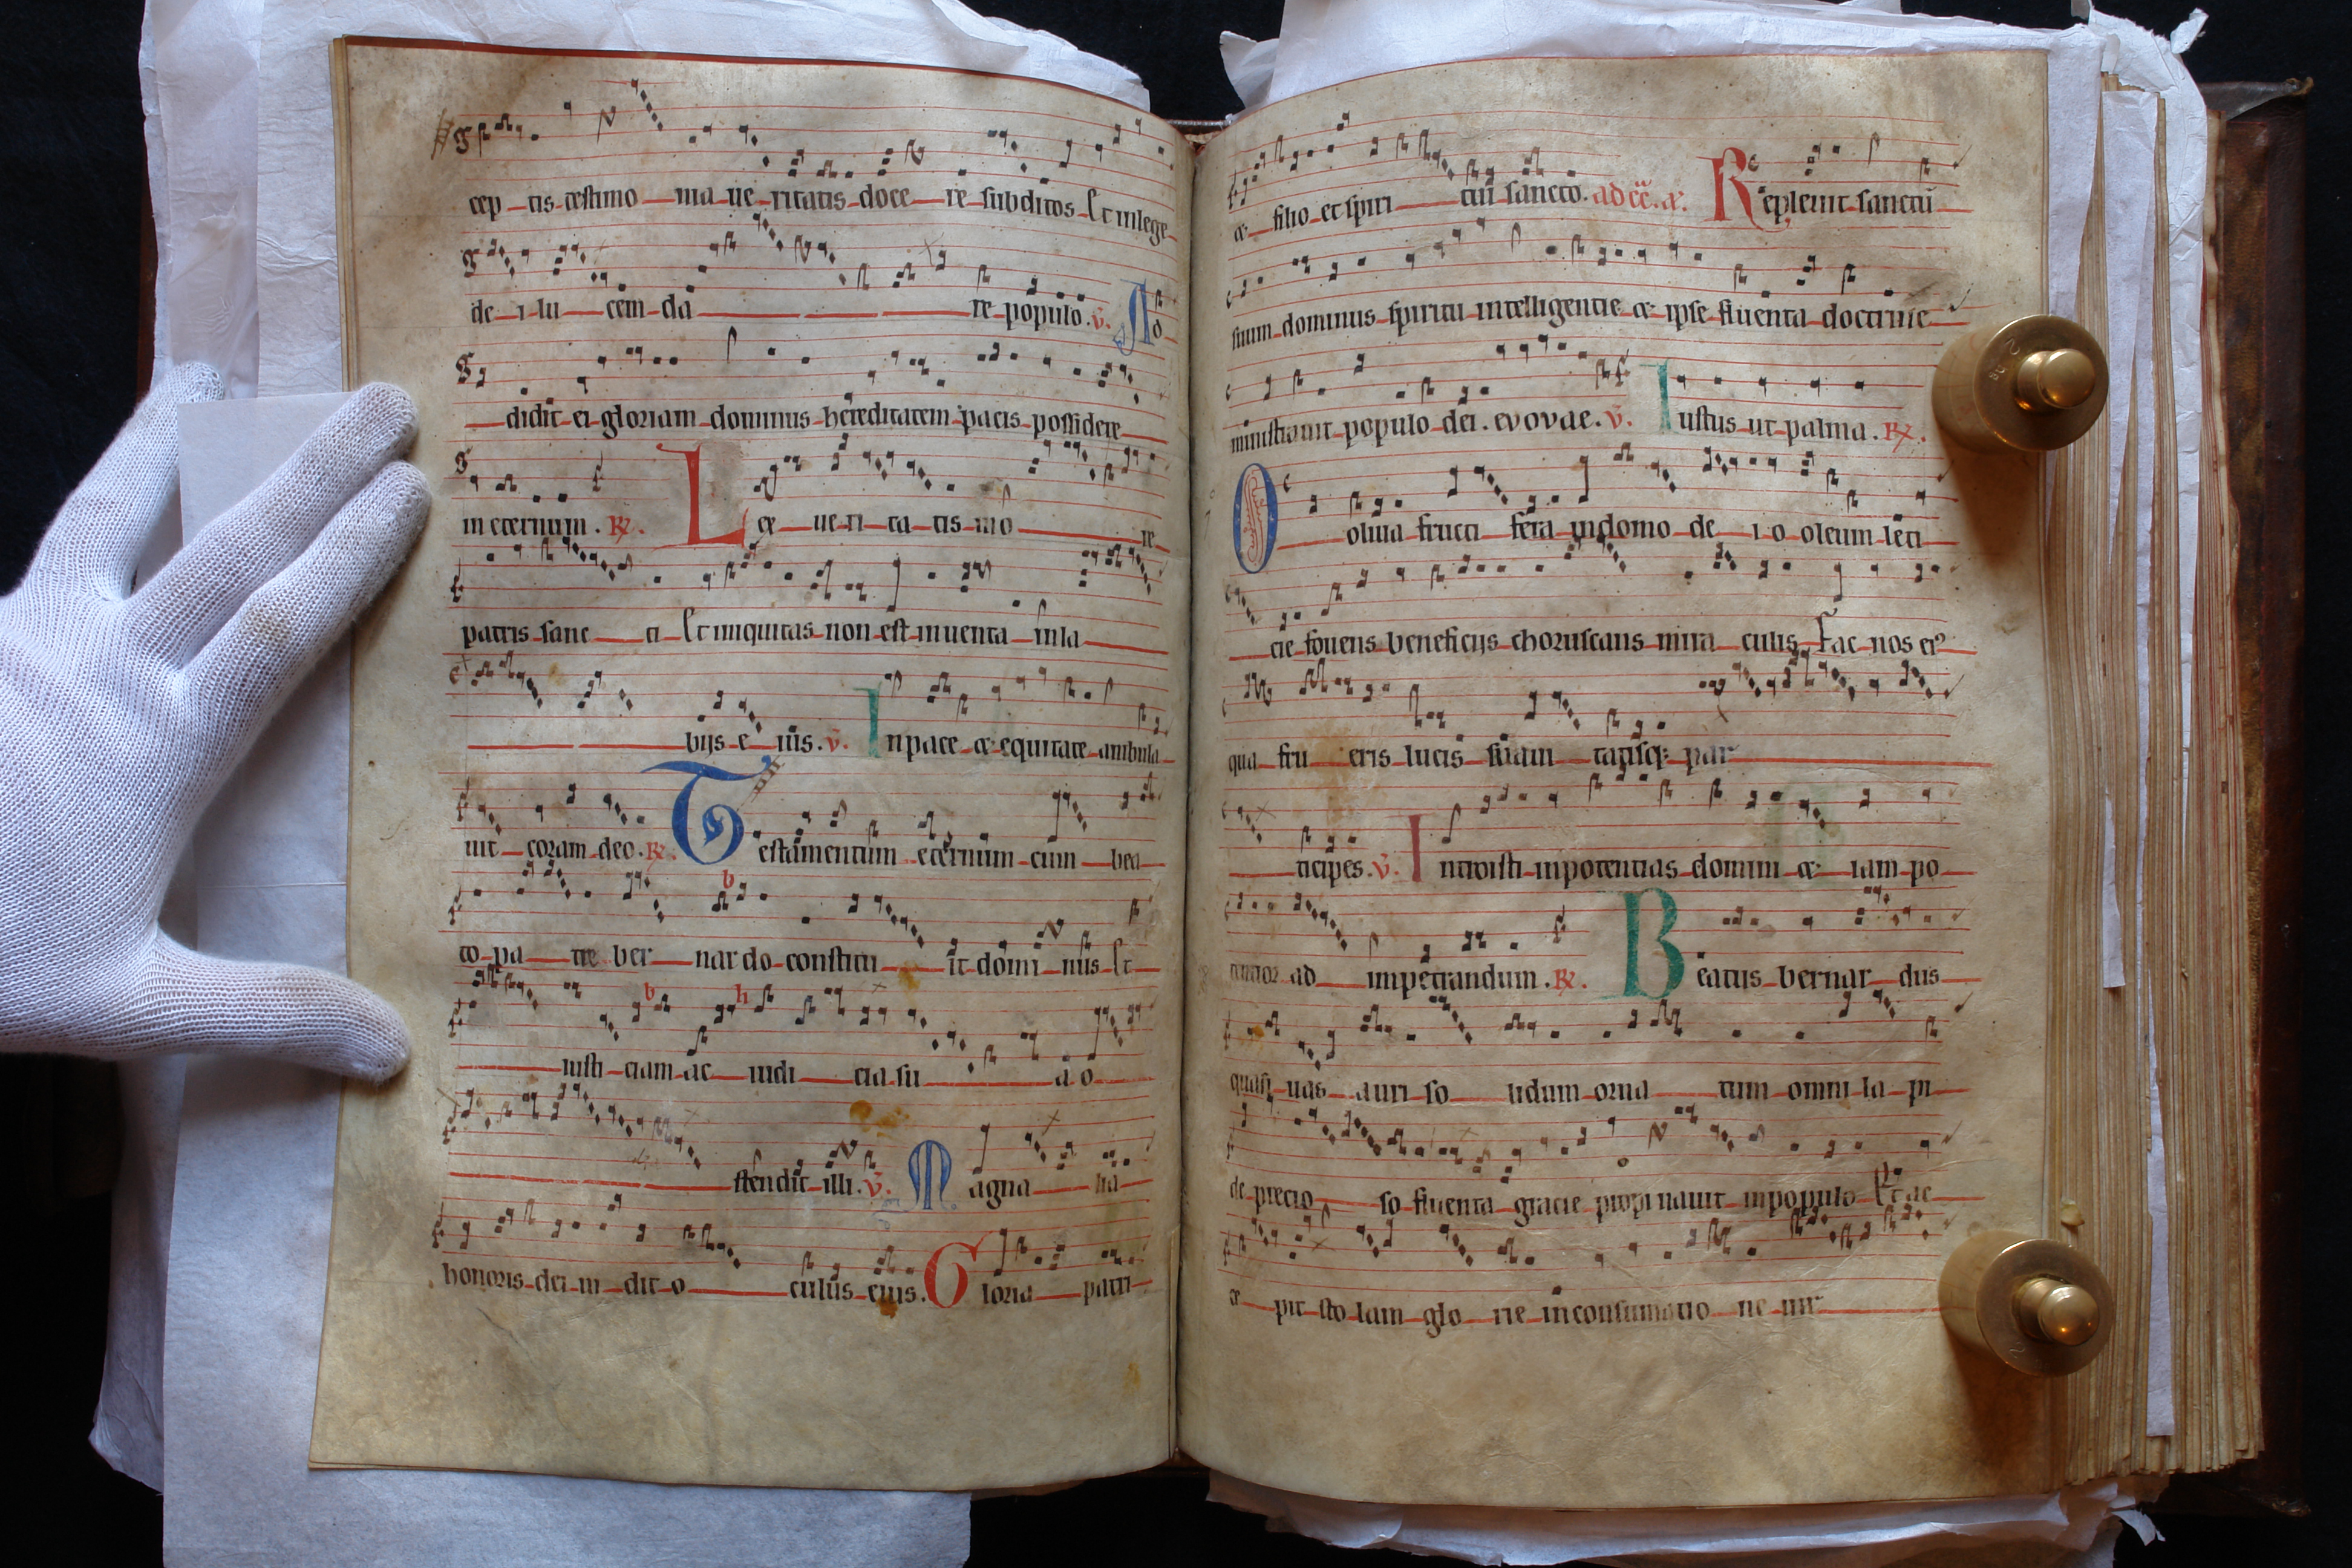 cep tis testimo nia ue ritatis doce re subditos Et in lege
de i lu cem da re populo. v̄. No
didit ei gloriam dominus hereditatem pacis possidere
in eternum. R̷. L ex ue ri ta tis in o re
patris sanc ti Et iniquitas non est inuenta in la
bijs e iūs. v̄. In pace et equitate ambula
uit coram deo. R̷. Testamentum eternum cum bea
to pa tre ber nar do constitu it domi nus Et
iusti ciam ac iudi cia su a o
stendit illi. v̄. Magna lia
honoris dei in dit o culus eius. Gloria patri
et filio et spiri tui sancto. ad cc̄. a. Repleuit sanctū
suum dominus spiritu intelligentie et ipse fluenta doctrine
ministrauit populo dei. evovae. v̄. Iustus ut palma. R̷.
O oliua fructi fera in domo de i o oleum leti
cie fouens beneficijs choruscans mira culis Fac nos ei⁹
qua fru eris lucis suaui tatisq; par
ticipes. v̄. Introisti in potentias domini et iam po
tentior ad impetrandum. R̷. Beatus bernar dus
quasi uas auri so lidum orna tum omni la pi
de precio so fluenta gracie propinauit in populo Et ac
ce pit sto lam glo rie in consummatio ne uir